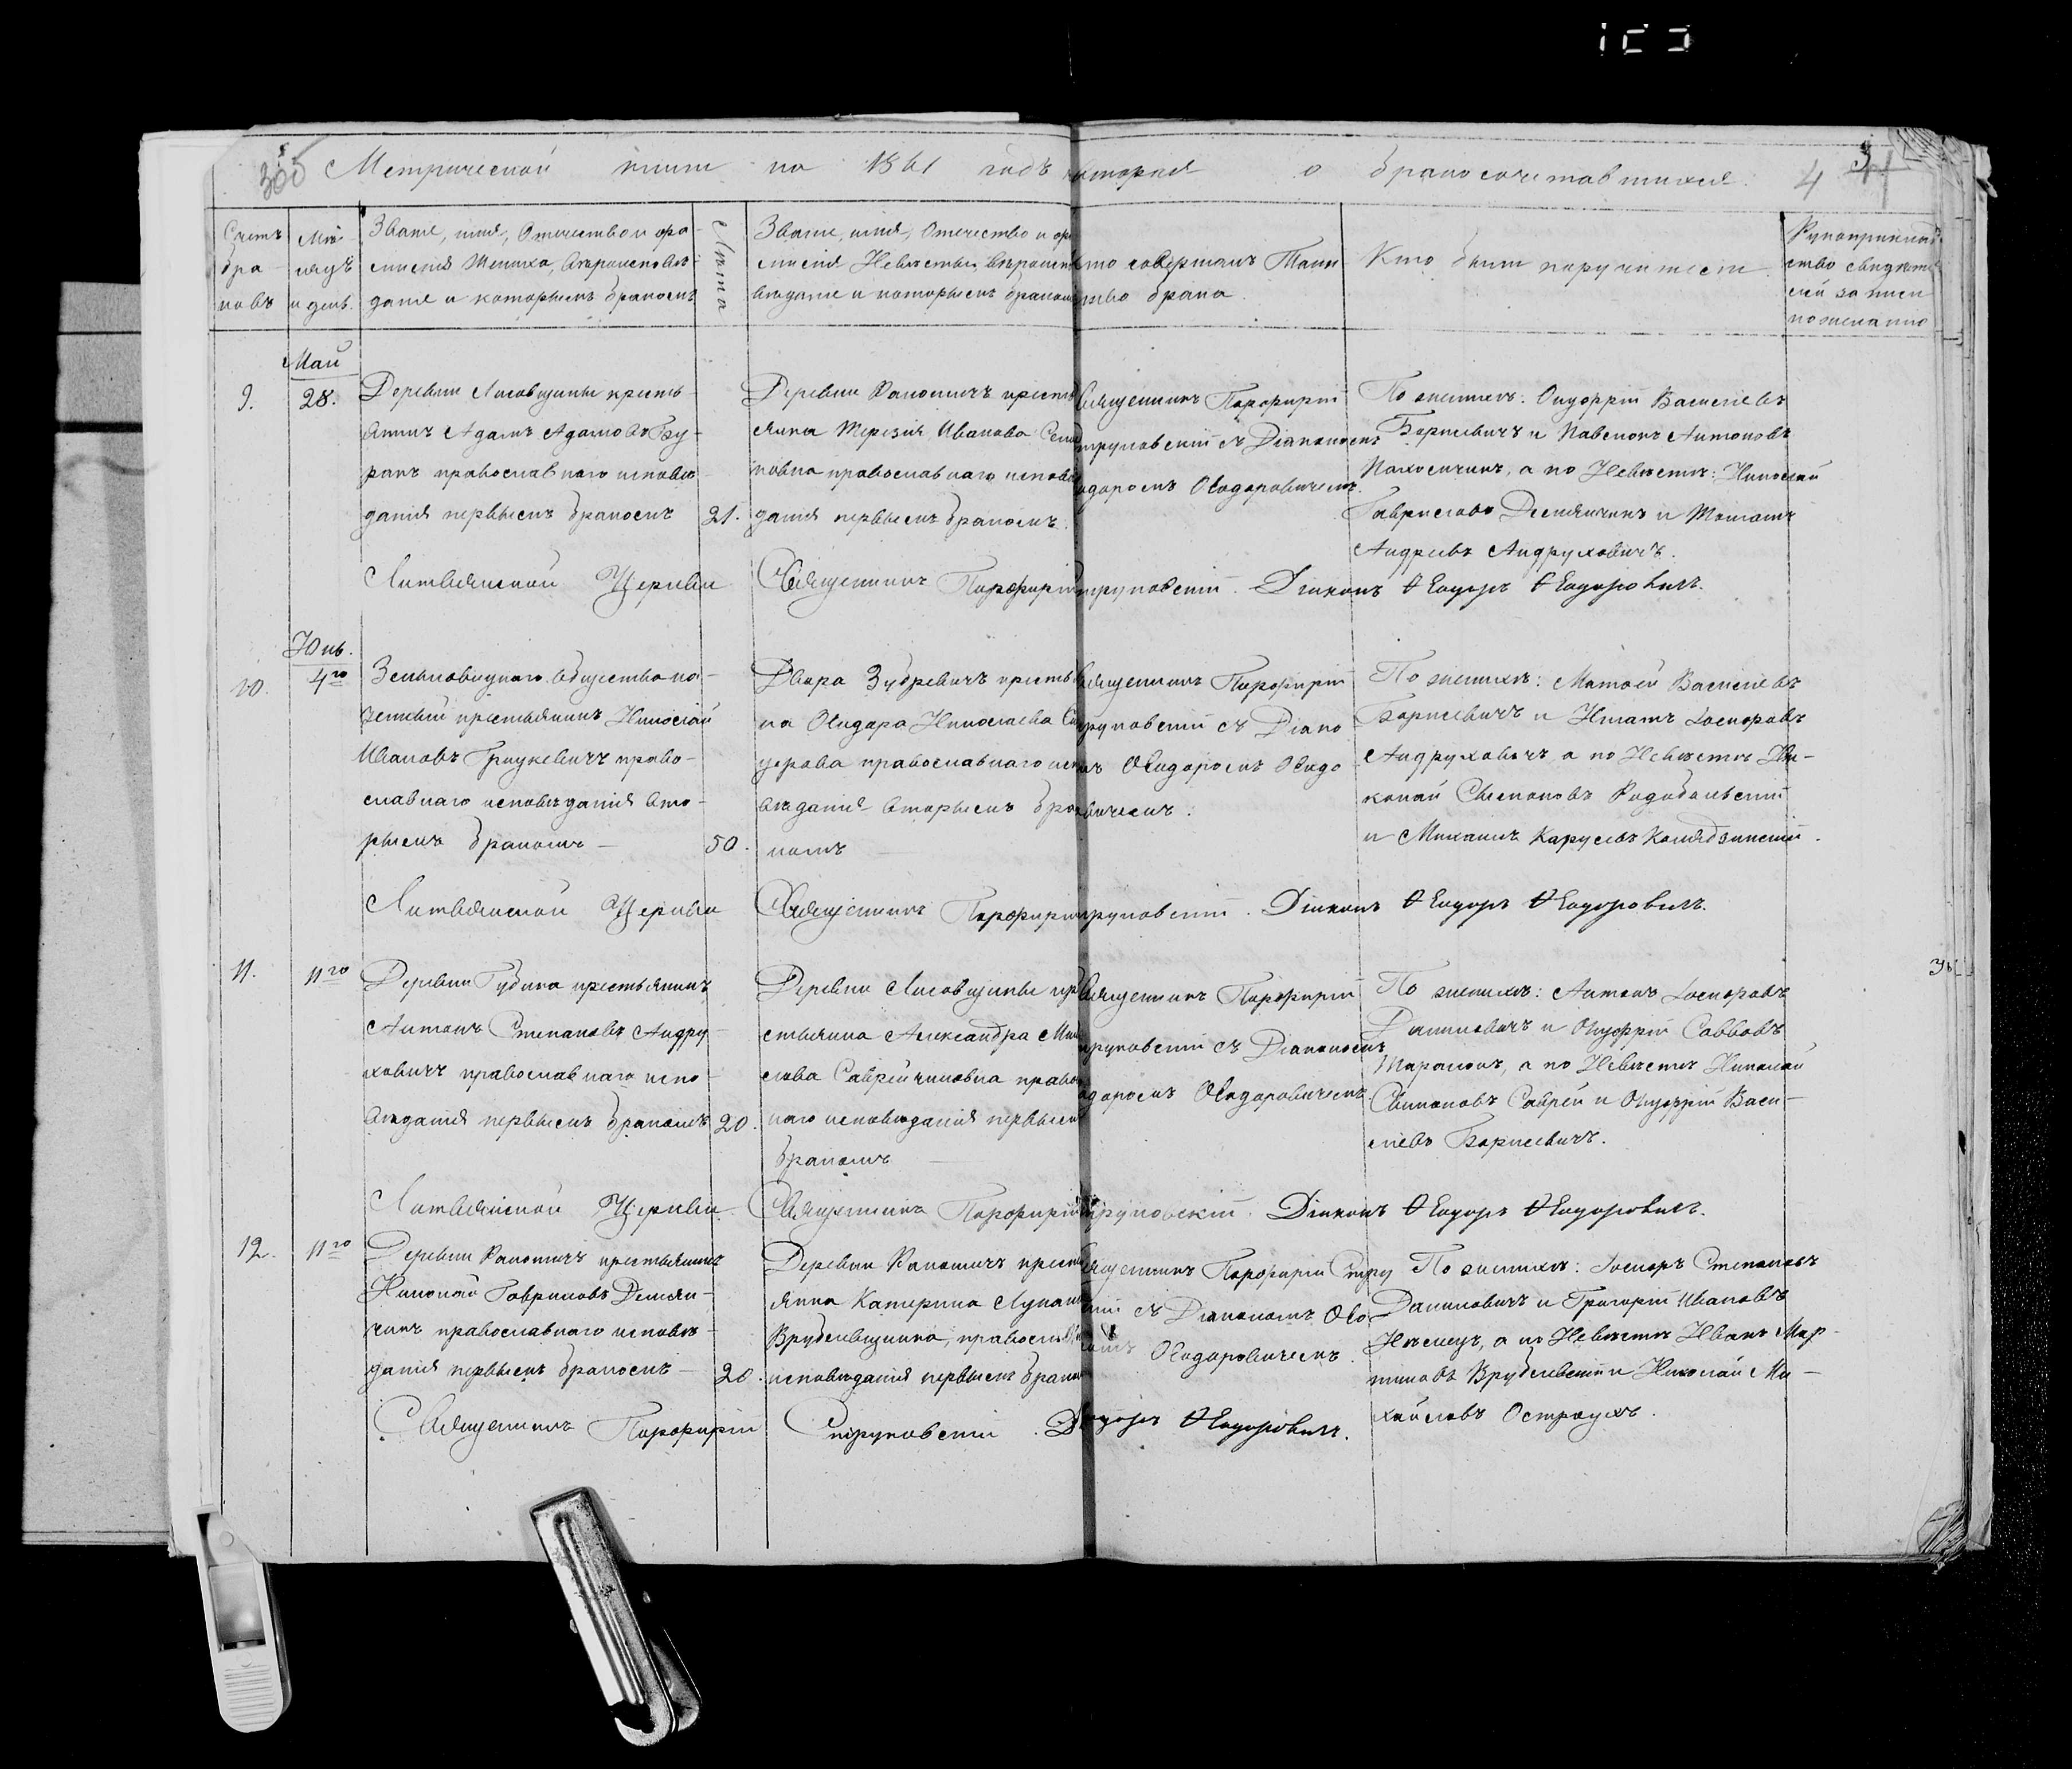 Метрической книги на 1861 годъ вторая о бракосочетавшихся. 4
Счетъ браковъ
Мѣсяцъ и день.
Званіе, имя, Отечество и фамилія Жениха, вѣроисповѣданія и которымъ бракомъ
Лѣта
Званіе, имя, Отечество и
милія Невѣсты, вѣроиспо
вѣданіе и которымъ браком
то совершалъ Таин
ство брака.
Кто были поручители.
Рукоприклад
ство свидѣте
лей записи
по желанію
Май
9. 28.
Деревни Лисовщины кресть-
янинъ Адамъ Адамовъ Бу-
ракъ православнаго исповѣ-
данія первымъ бракомъ 21.
Деревни Рапотичъ крестья
янка Терезія Иванова
православнаго исповѣ
данія первымъ бракомъ.
Священникъ Порфирій
труковскій съ Діакономъ
одоромъ Ѳеодоровичемъ.
По женихѣ: Онуфрій Василіевъ
Борисевичъ и Павелъ Антоновъ
а по Невѣстѣ: Николай
Гавриловъ Демянчикъ и
Андреевъ Андруховичъ.
Литвянской Церкви Священникъ Порфирій труковскій. Діаконъ Ѳеодоръ Ѳеодоровичъ.
Юнь.
10. 4го
общества
крестьянинъ Николай
Ивановъ Грицкевичъ право-
славнаго исповѣданія вто-
рымъ бракомъ – 50.
Двора Зубревичъ кресть
ка Ѳеодора Николаева
православнаго исп
вѣданія вторымъ бра
комъ
Священникъ Порфирій
труковскій съ Діако
номъ Ѳеодоромъ Ѳеодо
ровичемъ.
По женихѣ: Матѳей Василіевъ
Борисевичъ и Игнатъ Іосифовъ
Андруховичъ, а по Невѣстѣ
Симоновъ Радобольскій
и Михаилъ Карулевъ
Литвянской Церкви Священникъ Порфирій труковскій. Діаконъ Ѳеодоръ Ѳеодоровичъ.
11. 11го
Деревни Губина крестьянинъ
Антонъ Степановъ Андру-
ховичъ православнаго испо-
вѣданія первымъ бракомъ 20.
Деревни Лисовщины кре
стьянка Александра
православ
наго исповѣданія первымъ
бракомъ –
Священникъ Порфирій
труковскій съ Діакономъ
одоромъ Ѳеодоровичемъ
По женихѣ: Антонъ Іосифовъ
Даниловичъ и Онуфрій Саввовъ
а по Невѣстѣ Николай
Симоновъ Саврей и Онуфрій Васи-
ліевъ Борисевичъ.
Литвянской Церкви Священникъ Порфирій труковскій. Діаконъ Ѳеодоръ Ѳеодоровичъ.
12. 11го
Деревни Рапотичъ крестьянинъ
Николай Гавриловъ Демян-
чикъ православнаго исповѣ-
данія первымъ бракомъ – 20.
Деревни Рапотичъ кресть
янка Катерина
Врублевщанка, православ
исповѣданія первымъ браком
Священникъ Порфирій Стру
кій съ Діакономъ Ѳео
ромъ Ѳеодоровичемъ.
По женихѣ: Іосифъ Степановъ
Даниловичъ и Григорій Ивановъ
Нѣмецъ, а по Невѣстѣ Иванъ Мар-
тиновъ Врублевскій и Николай Ми-
хайловъ Остроухъ.
Священникъ Порфирій Струковскій. Ѳеодоръ Ѳеодоровичъ.